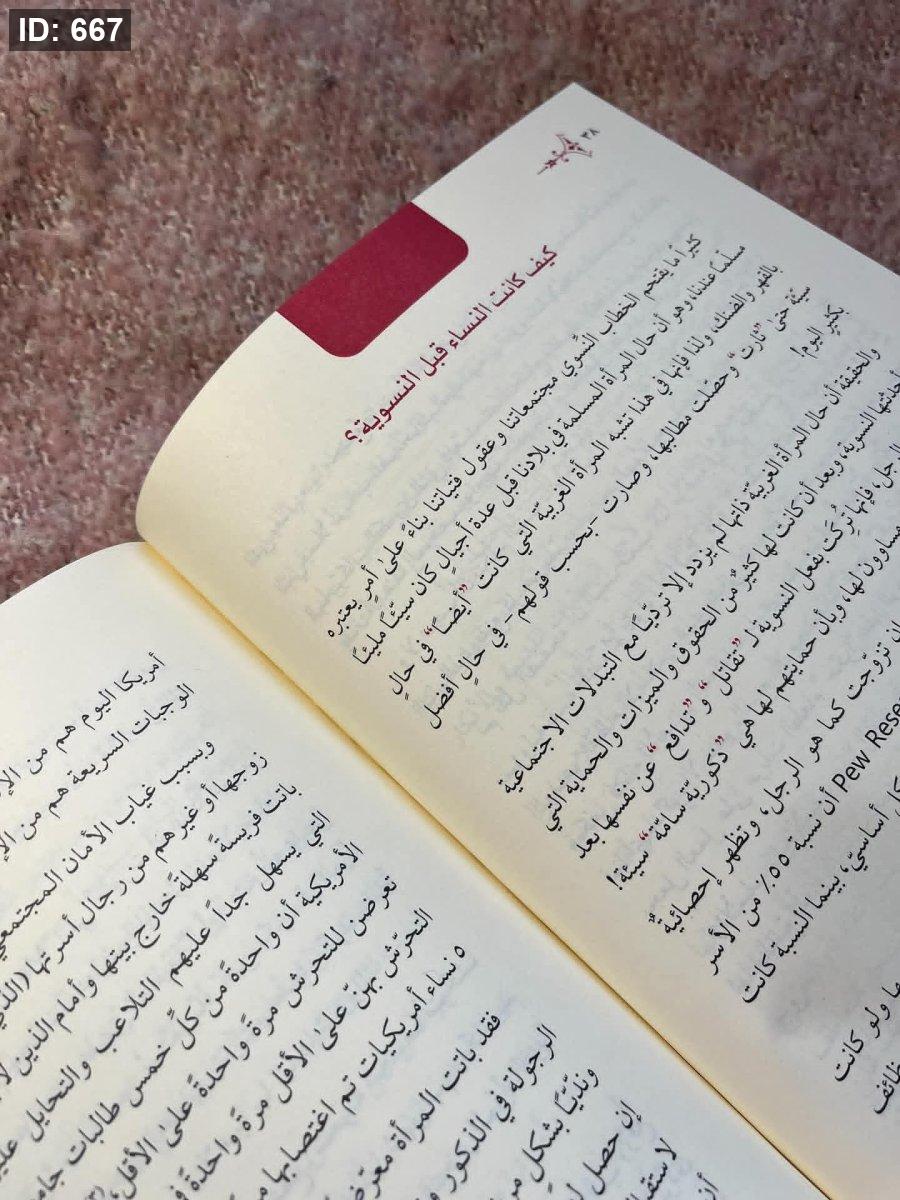 ID: 667
٣٨
كيف كانت النساء قبل النسوية؟
كثيراً ما يقتحم الخطاب النَّسَوي مجتمعاتنا وعقول فتياتنا بناءً على أمرٍ يعتبره
مسلَّماً عندنا، وهو أن حال المرأة المسلمة في بلادنا قبل عدة أجيالٍ كان سيّئًا مليئًا
بالقهر والضنك، ولذا فإنها في هذا تشبه المرأة الغربيّة التي كانت "أيضًا" في حالٍ
سيّئة حتى "ثارت" وحصّلت مطالبها، وصارت -بحسب قولهم- في حالٍ أفضل
بكثيرٍ اليوم!
والحقيقة أن حال المرأة الغربيّة ذاتها لم يزدد إلا تردّيًا مع التبدلات الاجتماعية
أحدثتها النسوية، وبعد أن كانت لها كثيرٌ من الحقوق والميزات والحماية التي
الرجل، فإنها تُركَت بفعل النسوية لـ "تقاتل" و "تدافع" عن نفسها بعد
مساوون لها، وبأن حمايتهم لها هي "ذكوريّة سامّة" سيئة!
تزوّجت كما هو الرجل، وتظهر إحصائيةٌ
Pew Rese أن نسبة ٥٥٪ من الأسر
أساسيّ، بينما النسبة كانت
ولو كانت
أمريكا اليوم هم من
الوجبات السريعة هم من
وبسبب غياب الأمان المجتمعي
زوجها أو غيرهم من رجال أسرتها
باتت فريسةً سهلةً خارج بيتها وأمام الذين
التي يسهل جداً عليهم التلاعب والتحايل
الأمريكية أن واحدةً من كلّ خمس طالبات
تعرضن للتحرش مرةً واحدةً على الأقل
التحرّش بهنّ على الأقل مرةً واحدةً
٥ نساء أمريكيات تم اغتصابها
فقد باتت المرأة
الرجولة في الذكور
ونِدّيًّا بشكلٍ
إن حصل